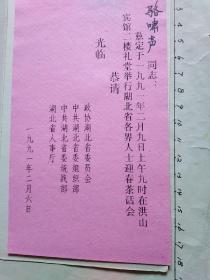 骆啸声 同志:
兹定于一九九一年二月九日上午九时在洪山
宾馆二楼礼堂举行湖北省各界人士迎春茶话会
恭请
光临
政协湖北省委员会
中共湖北省委组织部
中共湖北省委统战部
湖北省人事厅
一九九一年二月六日